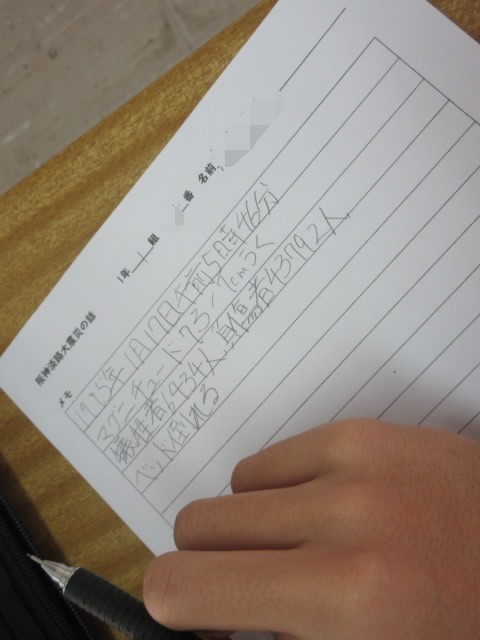 阪神淡路大震災の話
1年 1 組 番 名前
メモ
1995年1月17日午前5時46分
マグニチュード7.3 1cmうく
犠牲者6,434人 負傷者43792人
ベッド倒れる